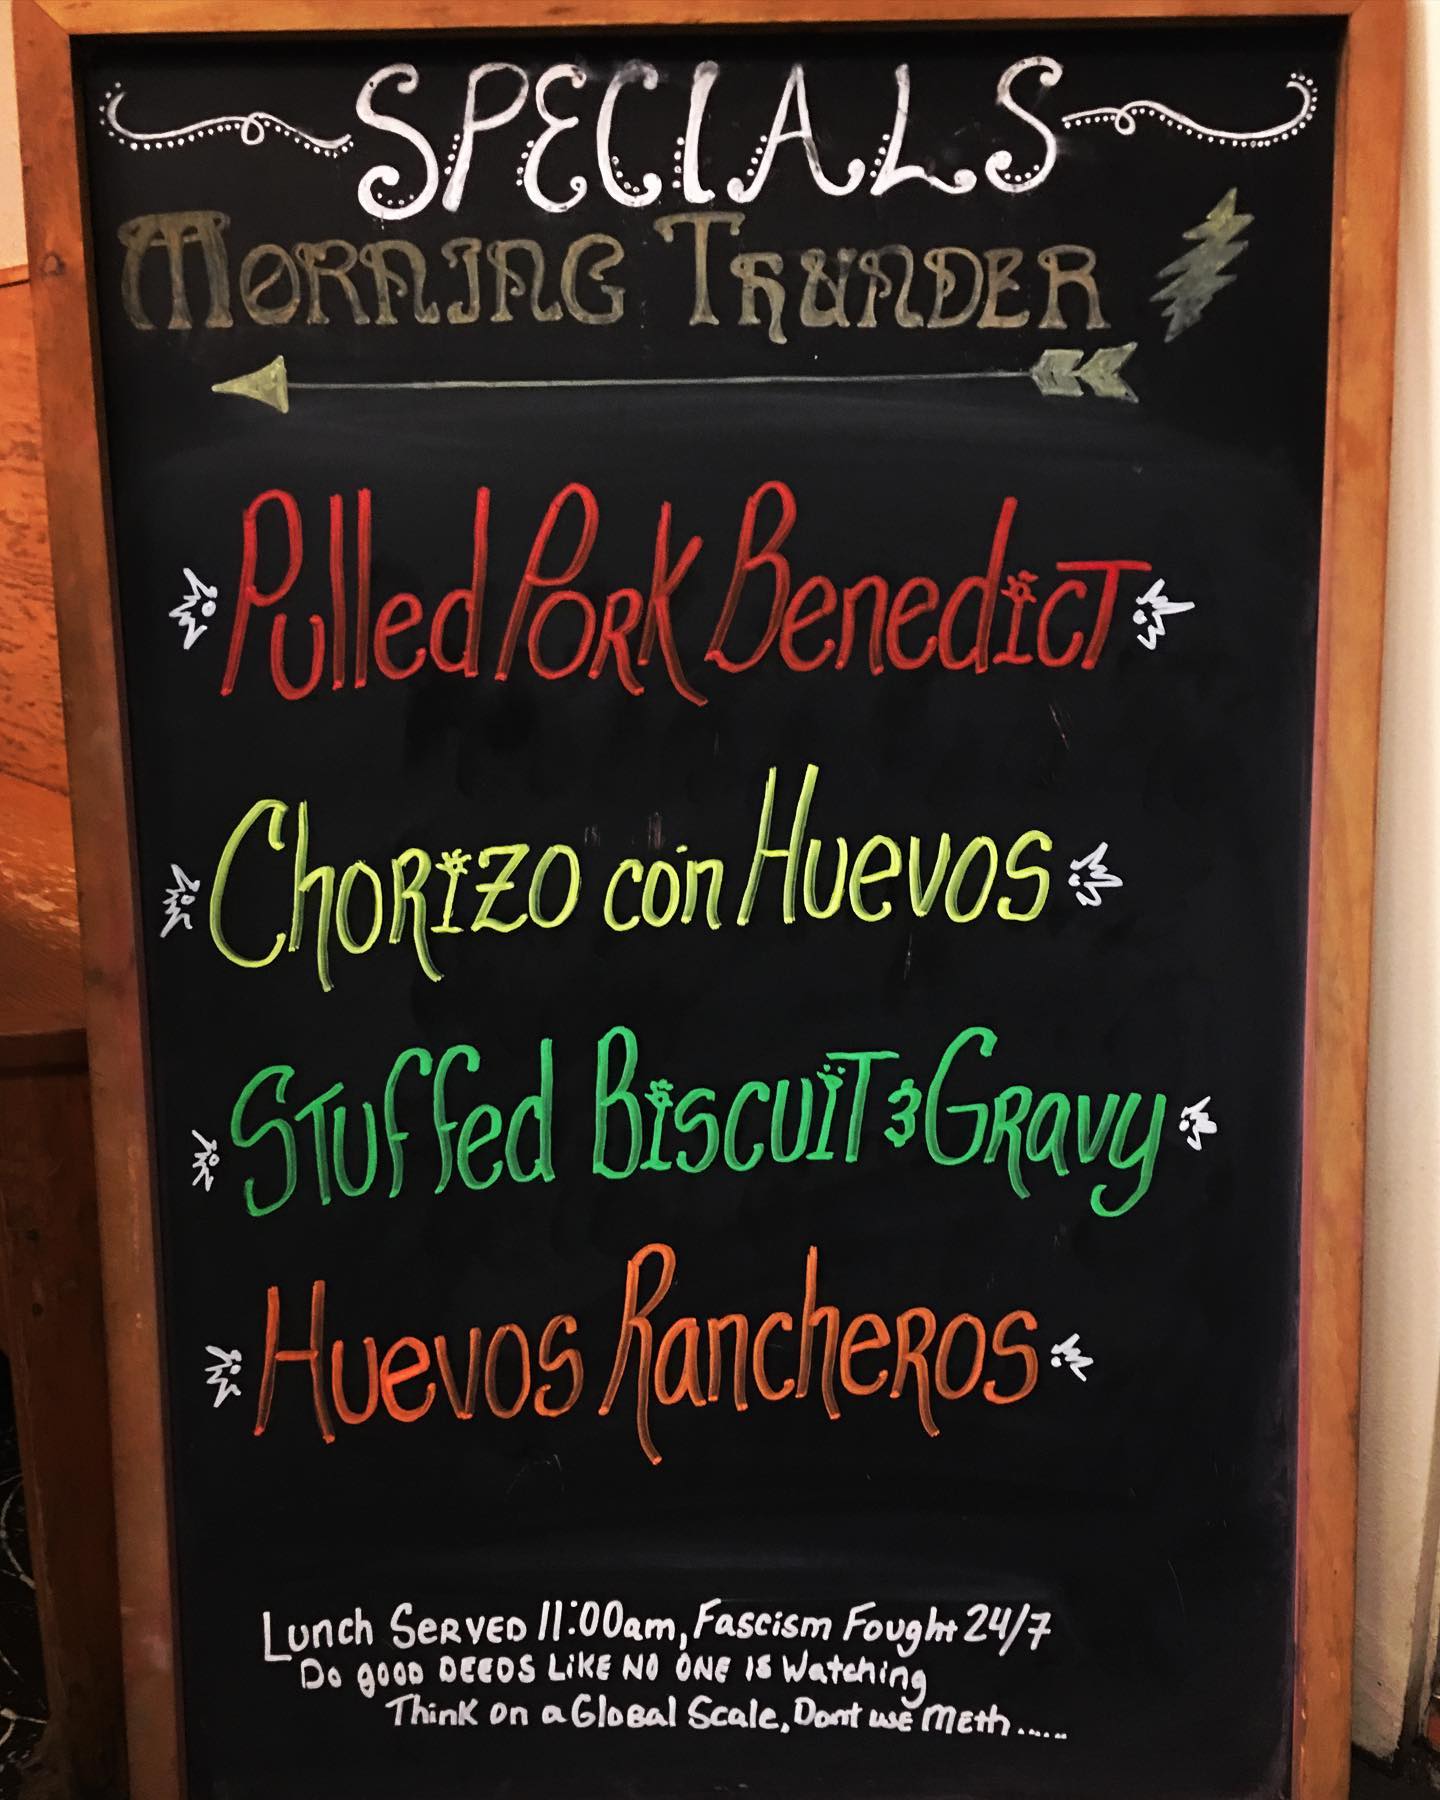 SPECIALS
MORNING THUNDER
Pulled PORK BenedicT
ChORIZO con HuevoS
STuffed BiscuiT & GRavy
HuevoS RancheROS
Lunch SERVED 11:00am, Fascism Fought 24/7
Do good DEEDS LIKE NO ONE IS Watching
Think on a Global Scale, Dont use METh.....